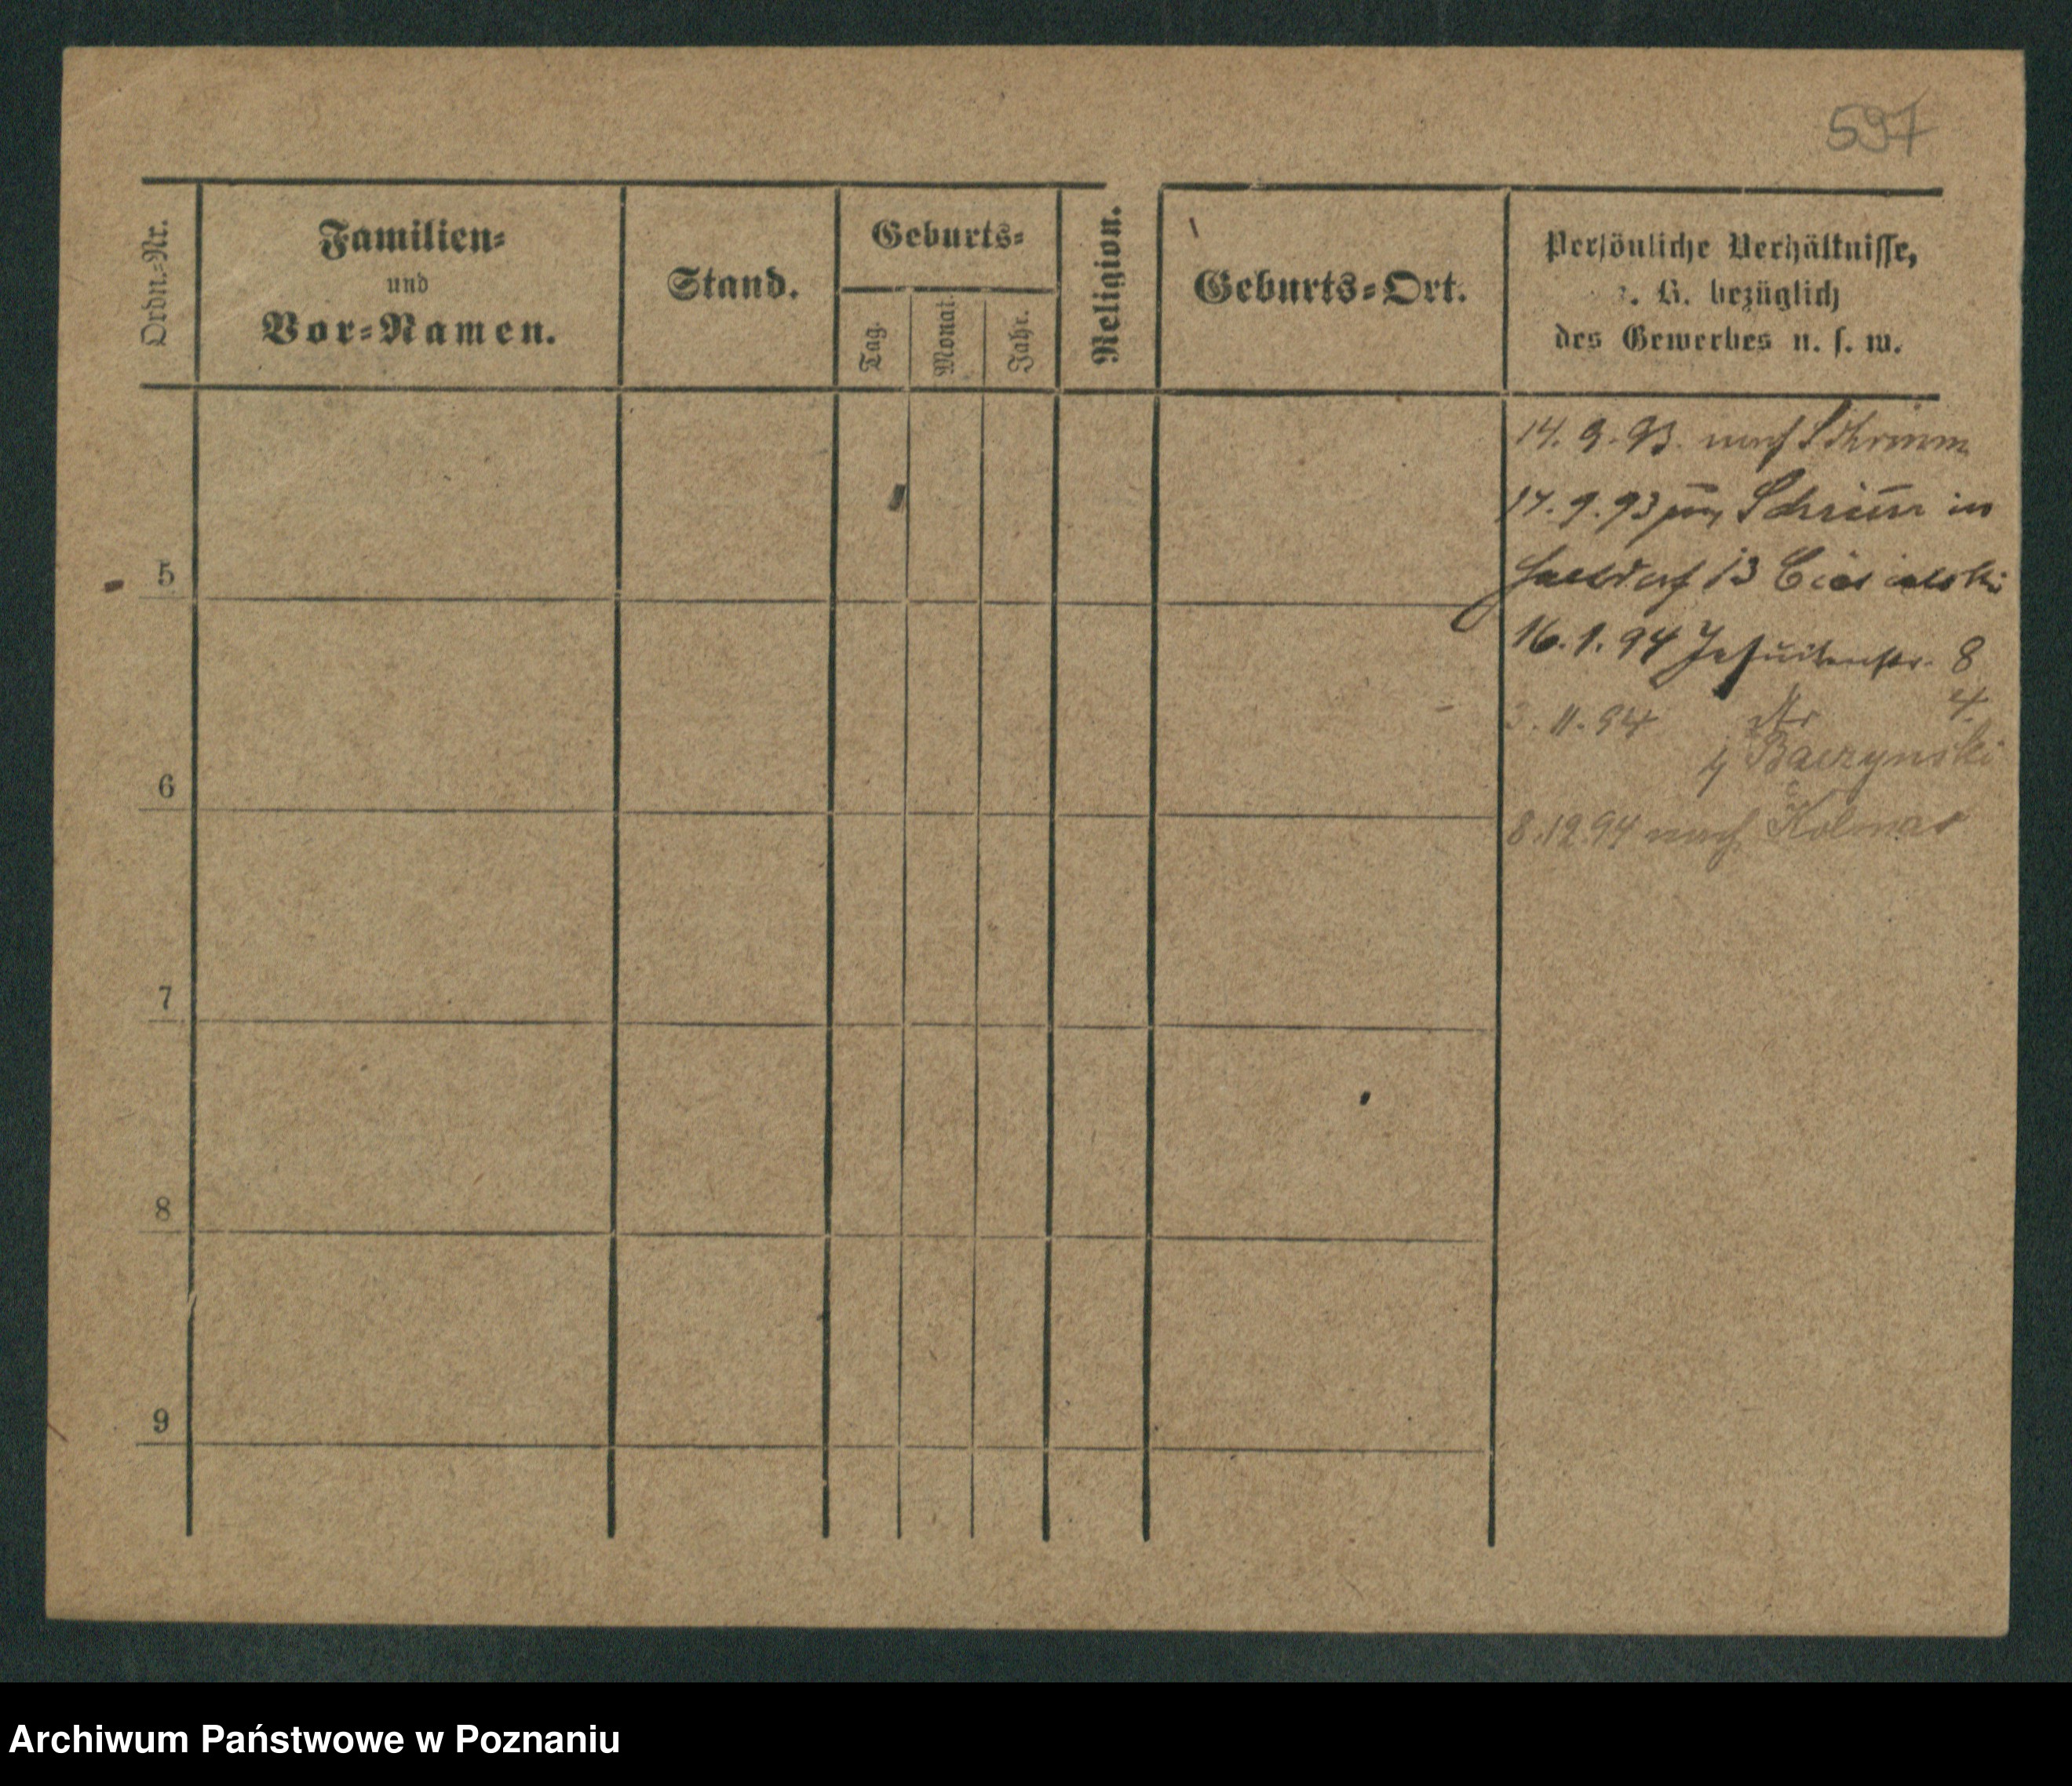 597
Ordn.-Nr.
Familien-
und
Vor-Namen.
Stand.
Geburts-
Tag.
Monat.
Jahr.
Religion.
Geburts-Ort.
Persönliche Verhältnisse,
z. B. bezüglich
des Gewerbes u. s. w.
14. 9. 93. nach Schrimm
17. 9. 93 Schrimm in
13
16. 1. 94 Jesuitenstr. 8
. 11. 94 4
Baczynski
8. 12. 94 nach Kolmar
5
6
7
8
9
Archiwum Państwowe w Poznaniu